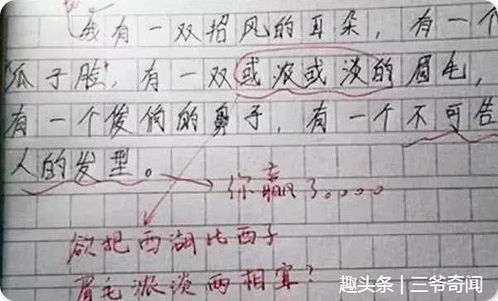 我有一双招风的耳朵，有一个
瓜子脸，有一双或浓或淡的眉毛，
有一个俊俏的鼻子，有一个不可告
人的发型。
你赢了。。。。
欲把西湖比西子
眉毛浓淡两相宜？
趣头条 | 三爷奇闻